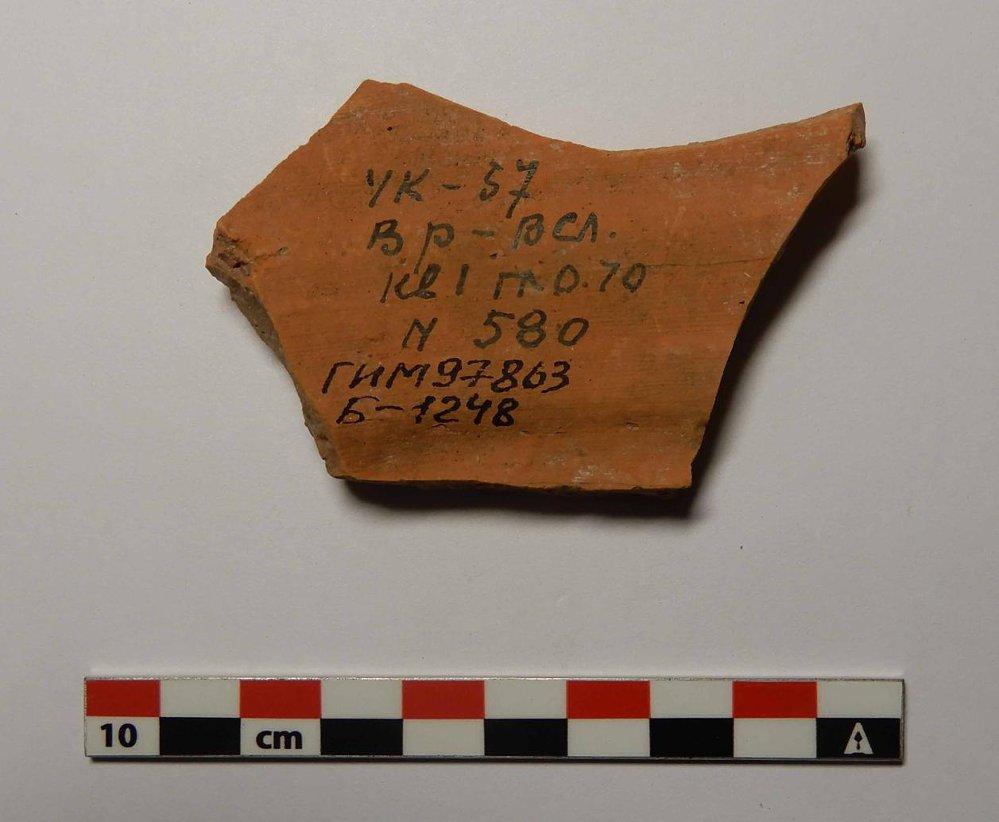 УК-57
Вр-Всл.
Кв I гл 0.70
N 580
ГИМ97863
Б-1248
10 cm